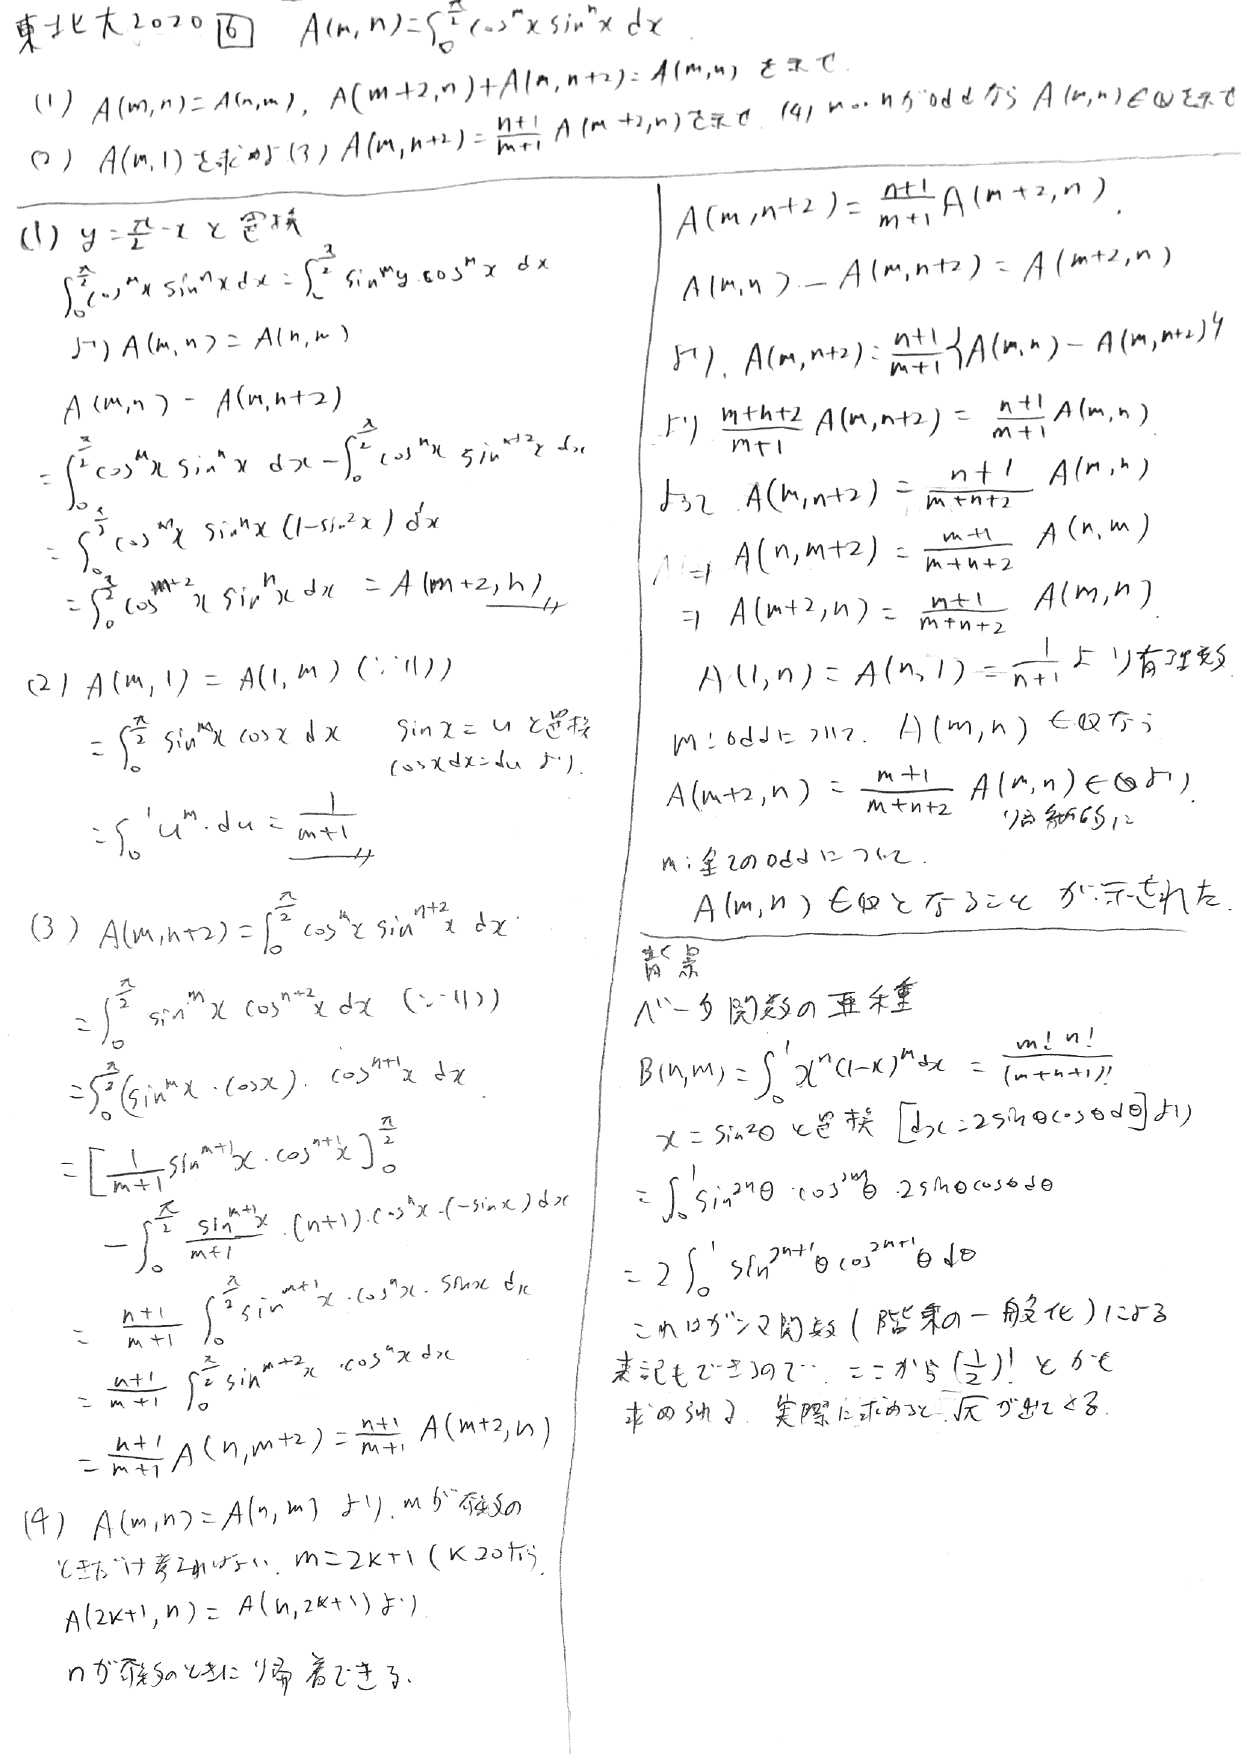 東北大2020 6 A(m,n)=∫_0^{π/2} cos^m x sin^n x dx.
(1) A(m,n)=A(n,m), A(m+2,n)+A(m,n+2)=A(m,n) を示せ.
(2) A(m,1)を求めよ (3) A(m,n+2)=\frac{n+1}{m+1} A(m+2,n)を示せ (4) m or nがoddなら A(m,n)∈Qを示せ
(1) y=\frac{π}{2}-x と置換
∫_0^{π/2} cos^m x sin^n x dx = ∫^{π/2} sin^m y cos^n x dx
より A(m,n)=A(n,m)
A(m,n) - A(m,n+2)
=∫_0^{π/2} cos^m x sin^n x dx - ∫_0^{π/2} cos^m x sin^{n+2} x dx
=∫_0^{π/2} cos^m x sin^n x (1-sin^2 x) dx
=∫_0^{π/2} cos^{m+2} x sin^n x dx = A(m+2,n)
(2) A(m,1) = A(1,m) (∵(1))
=∫_0^{π/2} sin^m x cos x dx sin x = u と置換
cos x dx = du より.
=∫_0^1 u^m・du = \frac{1}{m+1}
(3) A(m,n+2)=∫_0^{π/2} cos^m x sin^{n+2} x dx
=∫_0^{π/2} sin^m x cos^{n+2} x dx (∵(1))
=∫_0^{π/2} (sin^m x・cos x)・cos^{n+1} x dx
=[\frac{1}{m+1} sin^{m+1} x・cos^{n+1} x]_0^{π/2}
-∫_0^{π/2} \frac{sin^{m+1} x}{m+1}・(n+1)・cos^n x・(-sin x) dx
=\frac{n+1}{m+1} ∫_0^{π/2} sin^{m+1} x・cos^n x・sin x dx
=\frac{n+1}{m+1} ∫_0^{π/2} sin^{m+2} x・cos^n x dx
=\frac{n+1}{m+1} A(n,m+2) = \frac{n+1}{m+1} A(m+2,n)
(4) A(m,n)=A(n,m) より, mが奇数の
ときだけ考えればよい. m=2k+1 (k≥0なら.
A(2k+1,n) = A(n,2k+1)より
nが奇数のときに帰着できる.
A(m,n+2)=\frac{n+1}{m+1} A(m+2,n).
A(m,n) - A(m,n+2) = A(m+2,n)
より, A(m,n+2)=\frac{n+1}{m+1}{A(m,n) - A(m,n+2)}
より \frac{m+n+2}{m+1} A(m,n+2) = \frac{n+1}{m+1} A(m,n)
よって A(m,n+2) = \frac{n+1}{m+n+2} A(m,n)
⇒ A(n,m+2) = \frac{m+1}{m+n+2} A(n,m)
⇒ A(m+2,n) = \frac{m+1}{m+n+2} A(m,n)
A(1,n) = A(n,1) = \frac{1}{n+1} より有理数
m:oddについて. A(m,n)∈Qなら
A(m+2,n) = \frac{m+1}{m+n+2} A(m,n)∈Qより
帰納的に
m:全てのoddについて.
A(m,n)∈Qとなることが示された.
背景
ベータ関数の亜種
B(n,m)=∫_0^1 x^n(1-x)^m dx = \frac{m! n!}{(m+n+1)!}
x=sin^2θ と置換 [dx=2sinθcosθdθ]より
=∫_0^1 sin^{2n}θ・cos^{2m}θ・2sinθcosθdθ
=2∫_0^1 sin^{2n+1}θ cos^{2m+1}θ dθ
これはガンマ関数(階乗の一般化)による
表記もできるので ここから(\frac{1}{2})! とかも
求められる. 実際に求めると√πが出てくる.